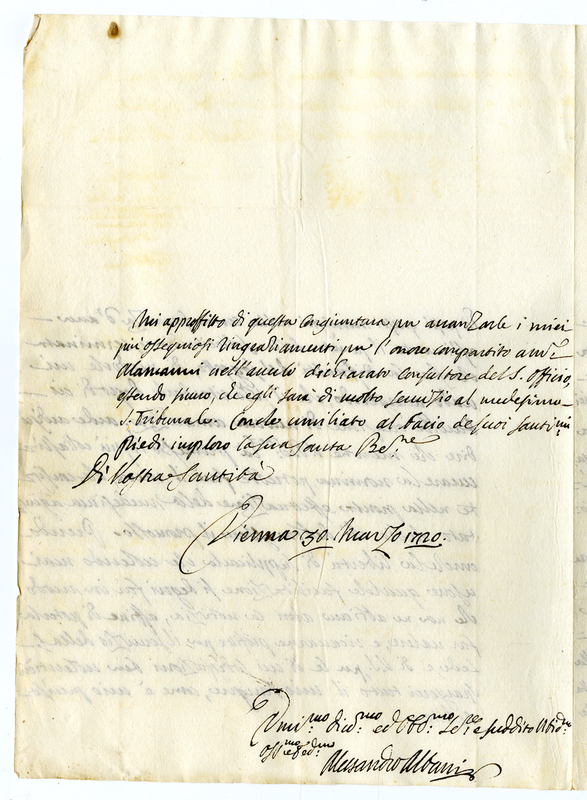 Mi approffitto di questa congiuntura per avanzarle i miei
più ossequiosi ringraziamenti per l'onore compartito a m.r
Alamanni nell'averlo dichiarato Consultore del S. Officio,
essendo sicuro, che egli sarà di molto servizio al medesimo
S. Tribunale. Con che umiliato al bacio de suoi santi.mi
Piedi imploro la sua Santa Be.ne
Di Vostra Santità
Vienna 30. Marzo 1720.
Umi.mo div.mo ed Obb.mo Se.re e suddito
Alessandro Albani